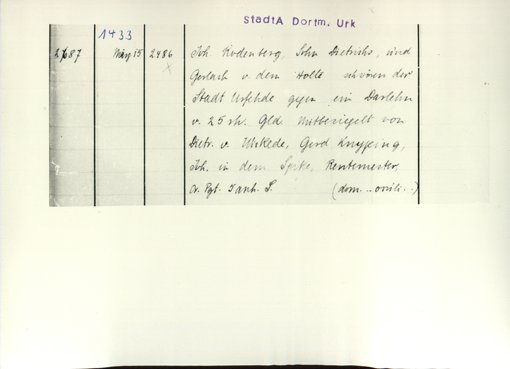 StadtA Dortm. Urk
1433
2687 März 15 2486 Joh. Rodenberg, Sohn Dietrichs, und
x
Gerlach v. dem Holle schwören der
Stadt Urfehde gegen ein Darlehn
v. 25 rh. Gld. Mitbesiegelt von
Dietr. v. Wickede, Gerd Knypping,
Joh. in dem Spike, Rentemester,
Or. Pgt. Tanh. S. (dom.